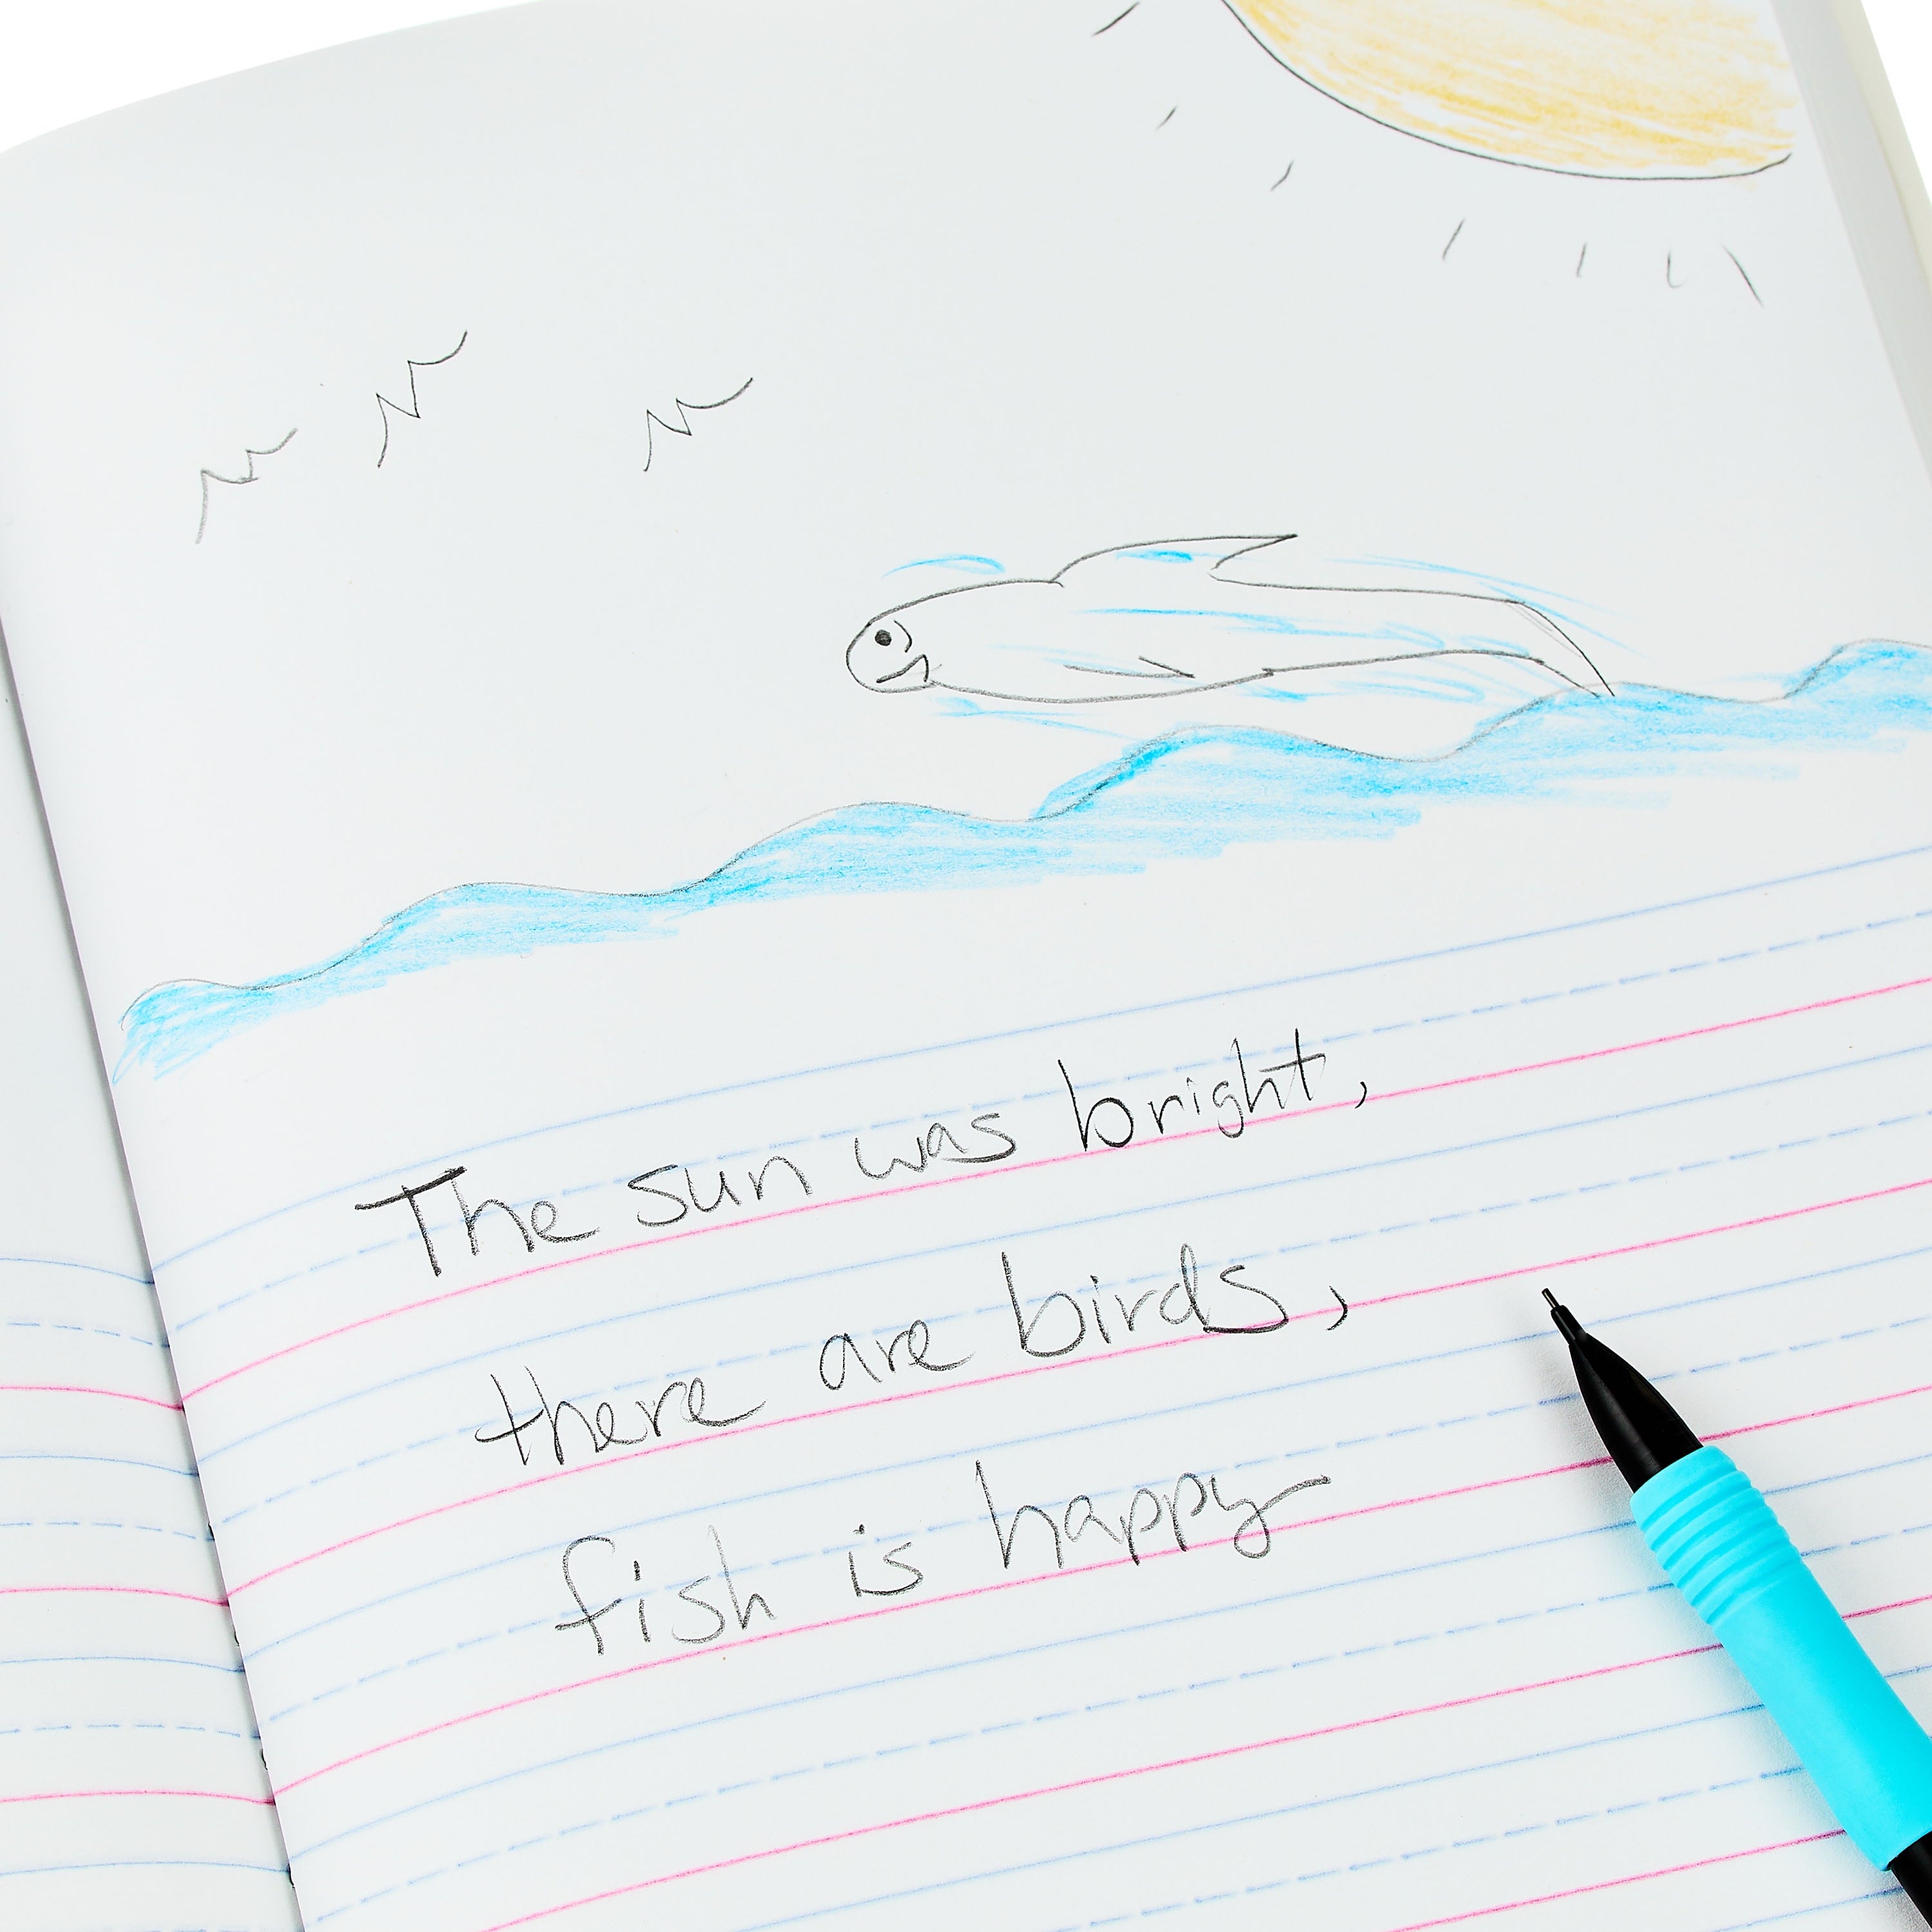 The sun was bright,
there are birds,
fish is happy